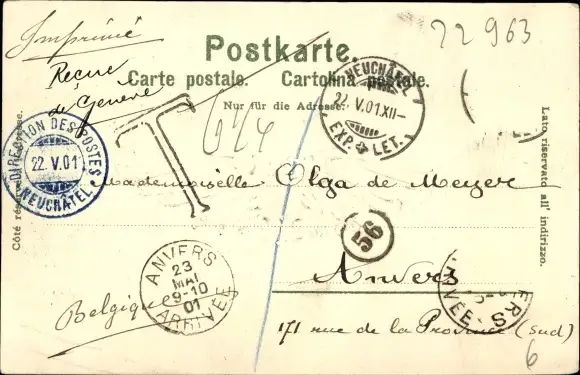 Imprimé
22963
Postkarte.
Reçue
de Genève
Carte postale. Cartolina postale.
Nur für die Adresse.
T
NEUCHÂTEL
22 V.01.XII–
EXP. LET.
DIRECTION DES POSTES
22 V.01
NEUCHÂTEL
Côté réservé à l'adresse.
Lato riservato all' indirizzo.
Mademoiselle Olga de Meyer
56
ANVERS
23
MAI
9-10
01
ARRIVÉE
Anvers
Belgique
171 rue de la Province (sud)
6